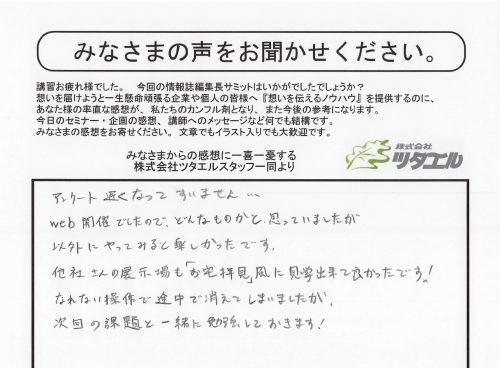 みなさまの声をお聞かせください。
講習お疲れ様でした。 今回の情報誌編集長サミットはいかがでしたでしょうか？
想いを届けようと一生懸命頑張る企業や個人の皆様へ『想いを伝えるノウハウ』を提供するのに、
あなた様の率直な感想が、私たちのカンフル剤となり、また今後の参考になります。
今日のセミナー・企画の感想、講師へのメッセージなど何でも結構です。
みなさまの感想をお寄せください。文章でもイラスト入りでも大歓迎です。
みなさまからの感想に一喜一憂する
株式会社ツタエルスタッフ一同より
株式会社
ツタエル
アンケート遅くなってすいません…
web開催でしたので、どんなものかと思っていましたが
以外にやってみると楽しかったです。
他社さんの展示場も「お宅拝見」風に見学出来て良かったです！
なれない操作で途中で消えてしまいましたが、
次回の課題と一緒に勉強しておきます！